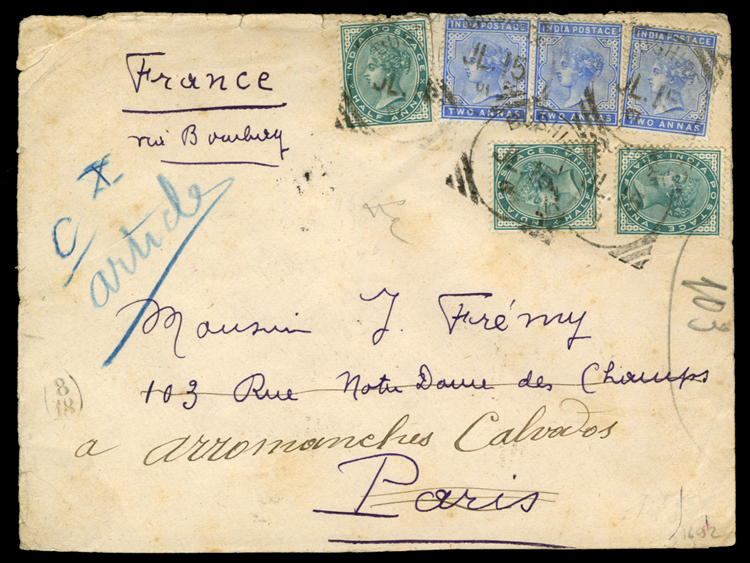 INDIA POSTAGE
HALF ANNA
INDIA POSTAGE
TWO ANNAS
INDIA POSTAGE
TWO ANNAS
INDIA POSTAGE
TWO ANNAS
JL 15
JL 15
INDIA POSTAGE
HALF ANNA
INDIA POSTAGE
HALF ANNA
France
via Bombay
c X
article
103
Monsieur J. Frémy
103 Rue Notre Dame des Champs
8
18
a arromanches Calvados
Paris